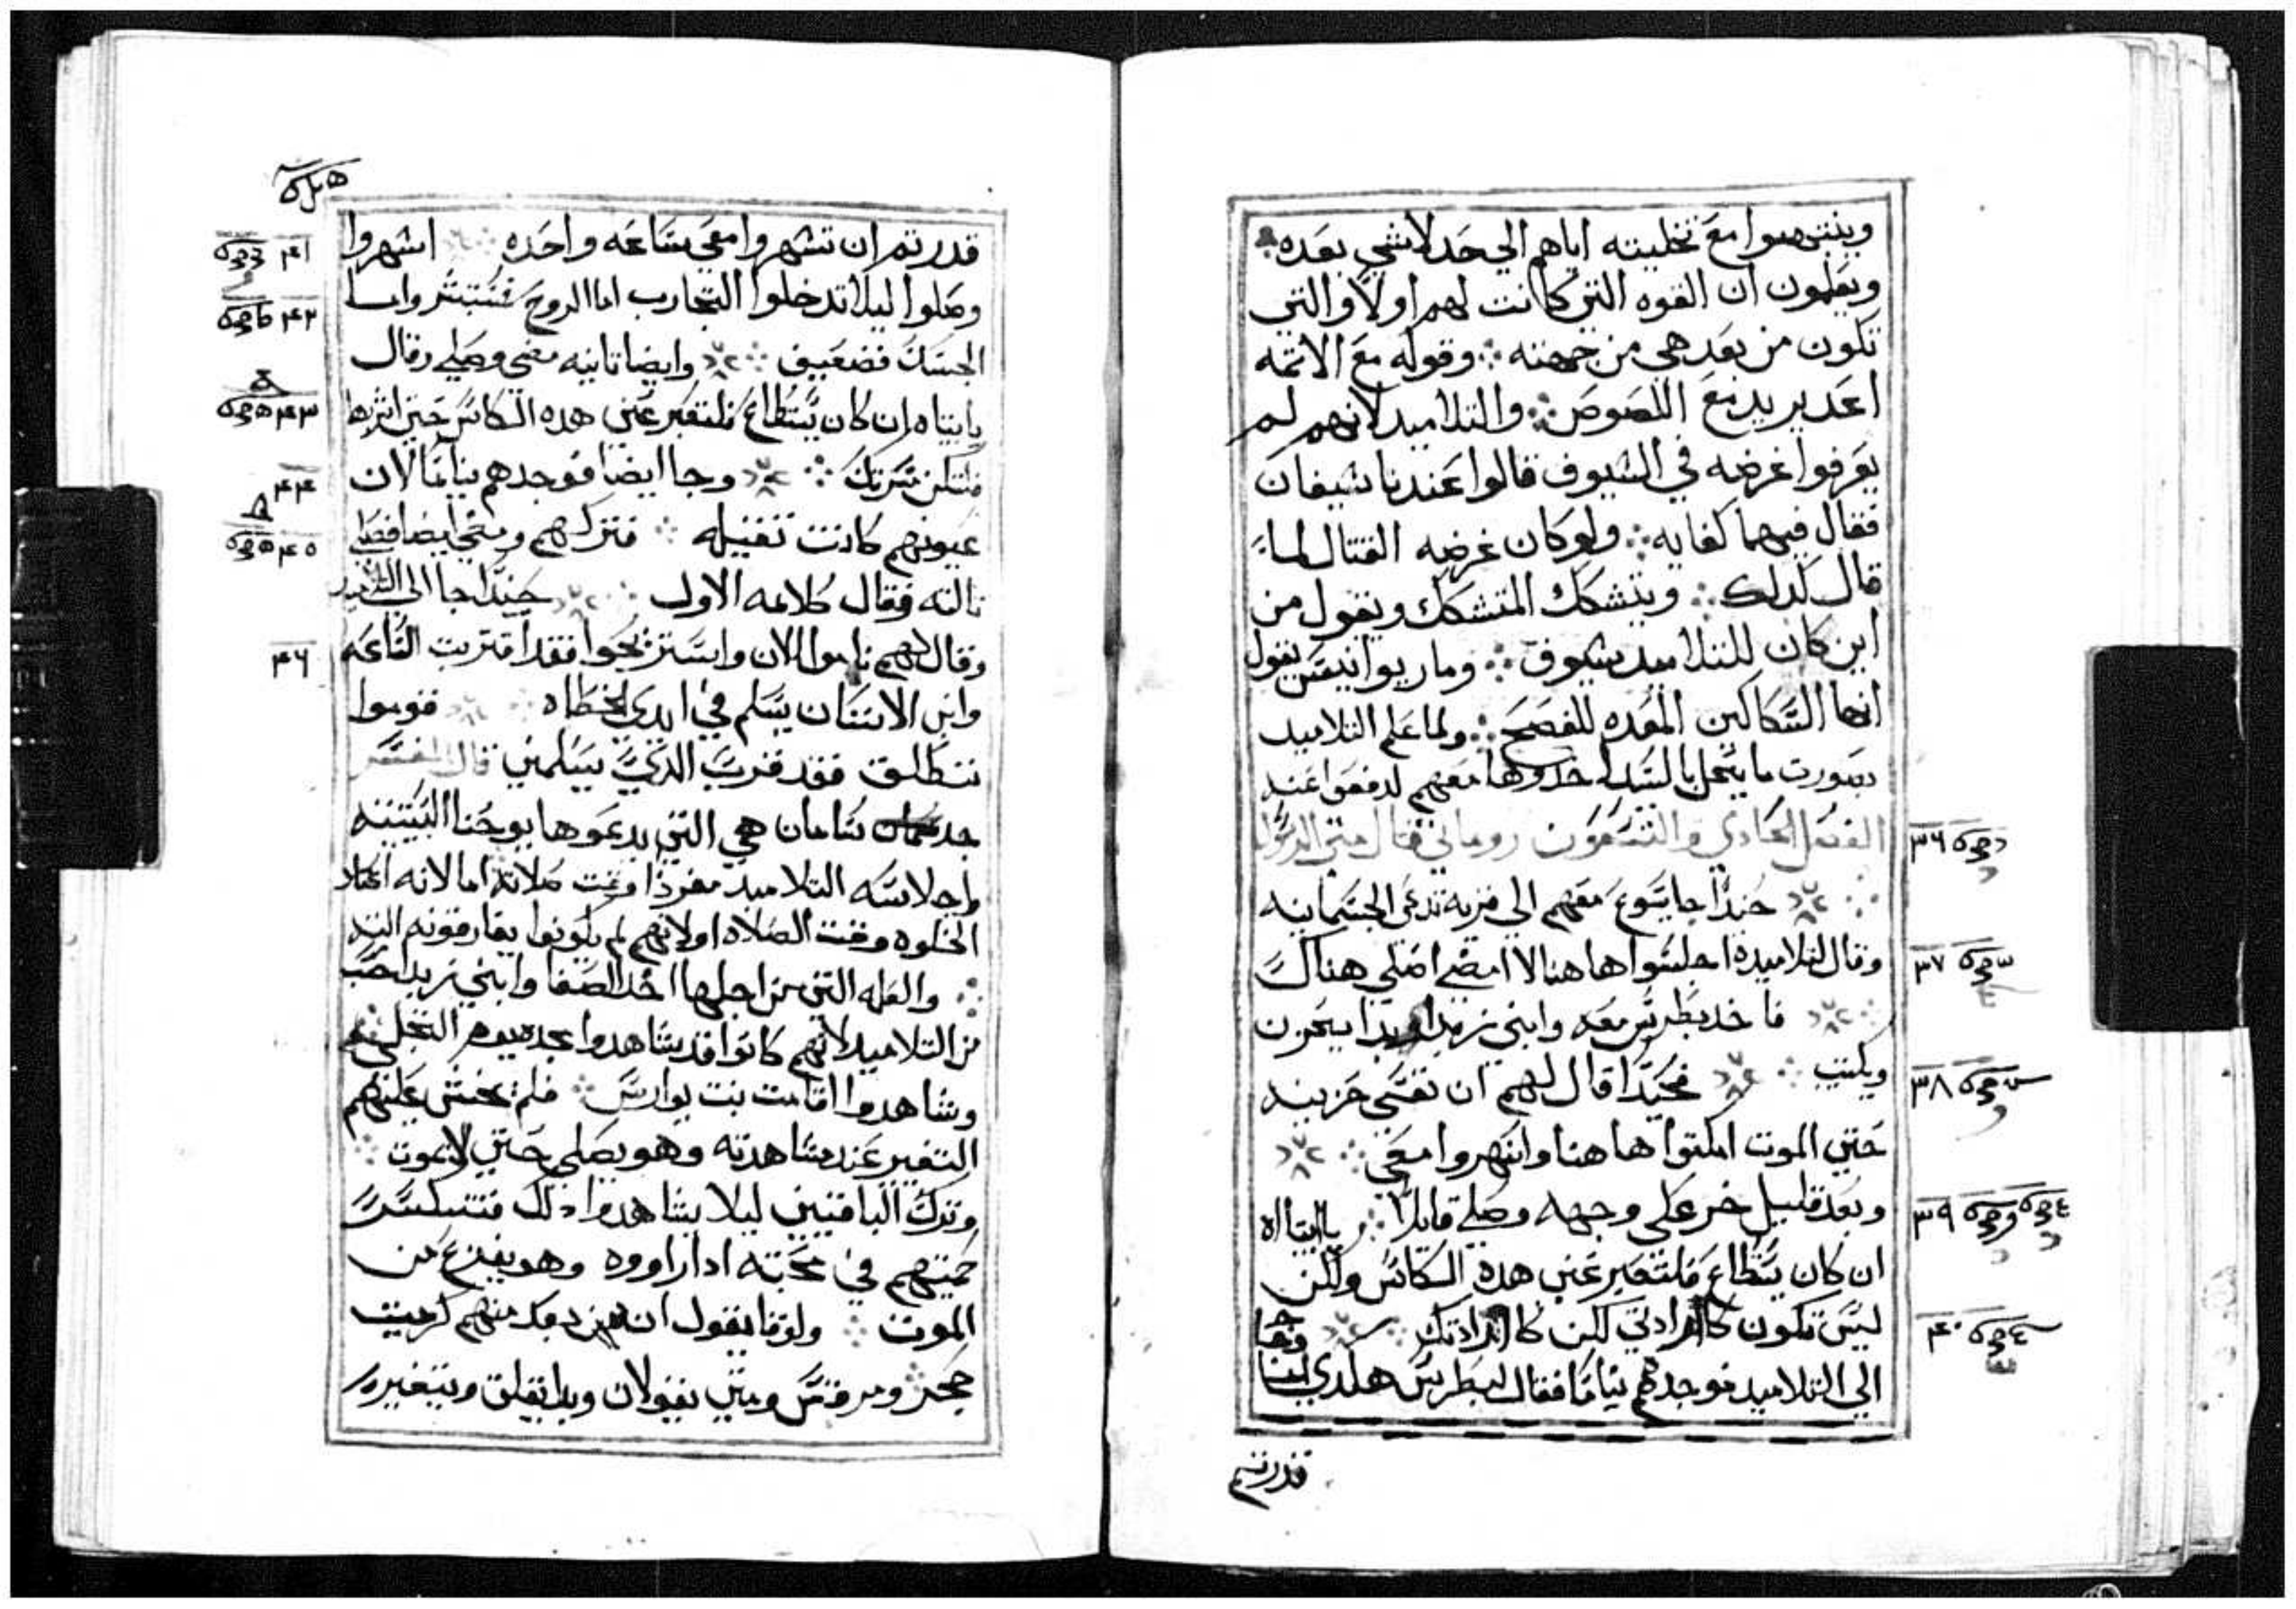 وينتبهوا مع تخليته اياهم الي حد لاشي بعده
ويعلمون ان القوه التي كانت لهم اولا والتي
تكون من بعد هي من جهته وقوله مع الاثمه
اعد يريد مع اللصوص والتلاميد لانهم لم
يعرفوا غرضه في السيوف قالوا عندنا سيفان
فقال فيهما كفايه ولو كان غرضه القتال لما
قال كدلك ويتشكك المتشكك ويقول من
اين كان للتلاميد سيوف وماريوانيس يقول
انها السكاكين المعده للفصح ولما علم التلاميد
بصورت ما يحل بالسيد اخدوها معهم لدفع
الفصل الحادي والتسعون روماني قال متي الرسول
حيندا جا يسوع معهم الي قريه تدعي الجسمانيه
وقال لتلاميده اجلسوا هاهنا لا امضي اصلي هناك
فاخد بطرس معه وابني زبدا وبدا يحزن
ويكتيب فحيندا قال لهم ان نفسي حزينه
حتي الموت امكتوا هاهنا واسهروا معي
وبعد قليل خر علي وجهه وصلي قايلا يا ابتااه
ان كان يستطاع فلتعبر عني هده الكاس ولكن
ليس تكون كارادتي لكن كارادتك وجا
الي التلاميد فوجدهم نياما فقال لبطرس هكدي لما
قدرتم
٣٦
٣٧
٣٨
٣٩
٤٠
قدرتم ان تسهروا معي ساعه واحده اسهروا
وصلوا ليلا تدخلوا التجارب اما الروح فمستبشر واما
الجسد فضعيف وايضا تانيه مضي وصلي وقال
يا ابتاه ان كان يستطاع فلتعبر عني هده الكاس حتي اشربها
فلتكن مسرتك وجا ايضا فوجدهم نياما لان
عيونهم كانت تقيله فتركهم ومضي ايضا فصلي
تالته فقال كلامه الاول حيندا جا الي التلاميد
وقال لهم ناموا الان واستريحوا فقد اقتربت الساعه
وابن الانسان يسلم في ايدي الخطاه قوموا
ننطلق فقد قرب الدي يسلمني قال المفسر
جدسامان هي التي يدعوها يوحنا البستنه
واجلاسه التلاميد مفردا وقت صلاته اما لانه اعتاد
الخلوه وقت الصلاه او لانهم لم يكونوا يفارقونه
والعله التي من اجلها اخد الصفا وابني زبدا حسب
من التلاميد لانهم كانوا قد شاهدوا مجده يوم التجلي
وشاهدوا اقامت بنت يوارس فلم يخش عليهم
التغير عند مشاهدته وهو يصلي حتي لا يموت
وترك الباقيين ليلا يشاهدوا دلك فتنكسر
حميتهم في محبته ادا راووه وهو يفزع من
الموت ولوقا يقول ان بعده منهم كرميت
حجر ومرقس ومتي يقولان وبدا يقلق ويتغير
٤١
٤٢
٤٣
٤٤
٤٥
٤٦